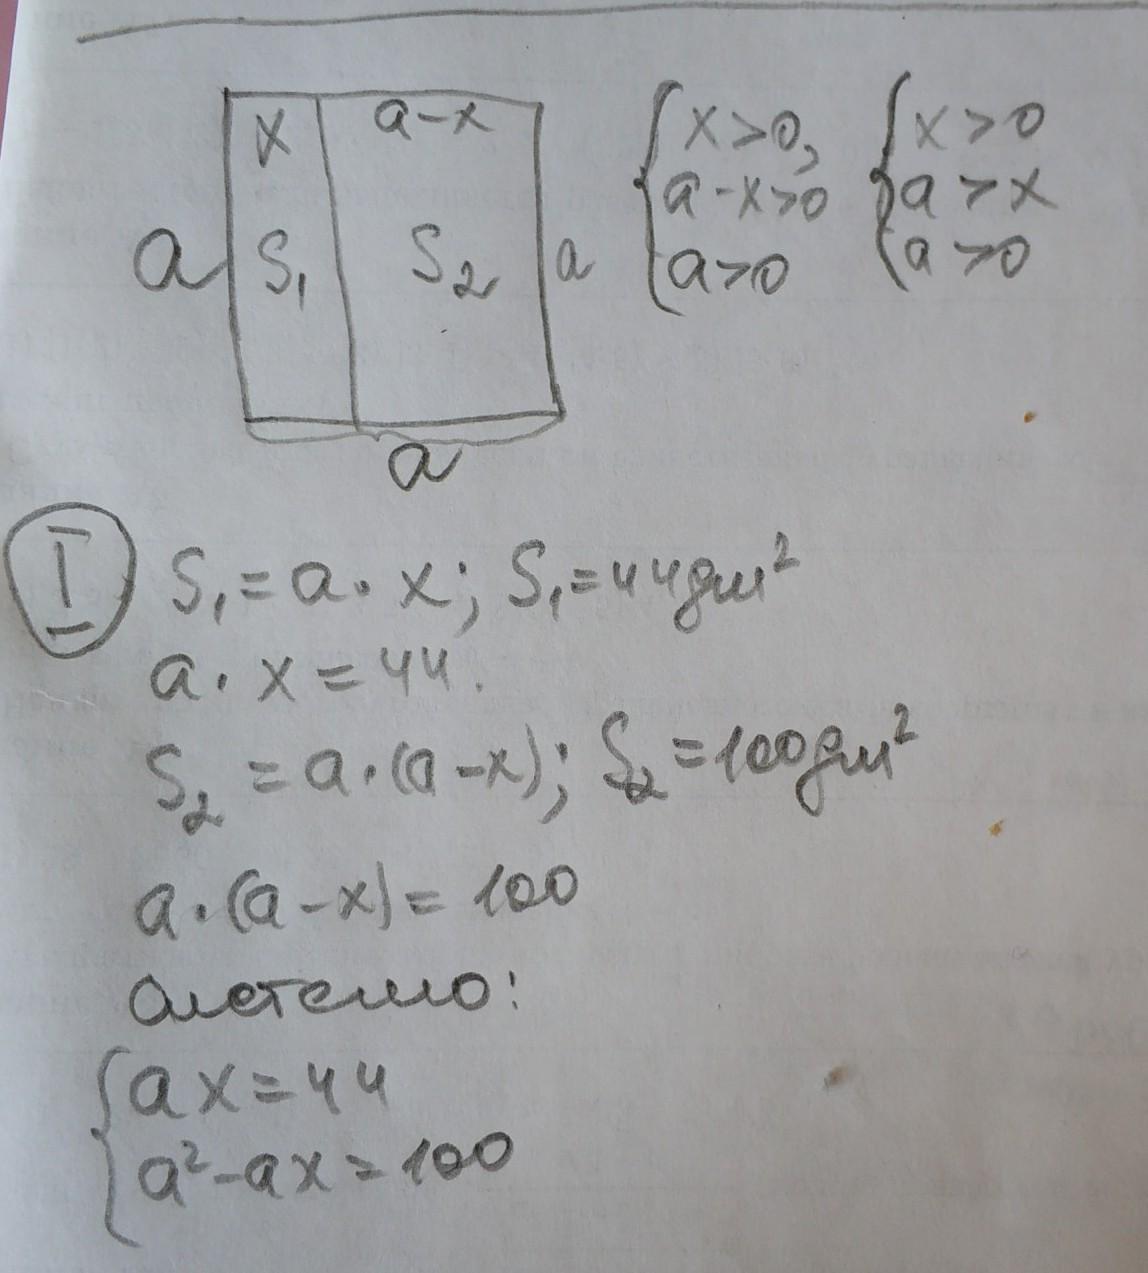 x a-x
a S₁ S₂ a
a
{ x>0, { x>0
a-x>0 a>x
a>0 a>0
I S₁=a·x; S₁=44дм²
a·x=44.
S₂=a·(a-x); S₂=100дм²
a·(a-x)=100
система:
{ ax=44
a²-ax=100